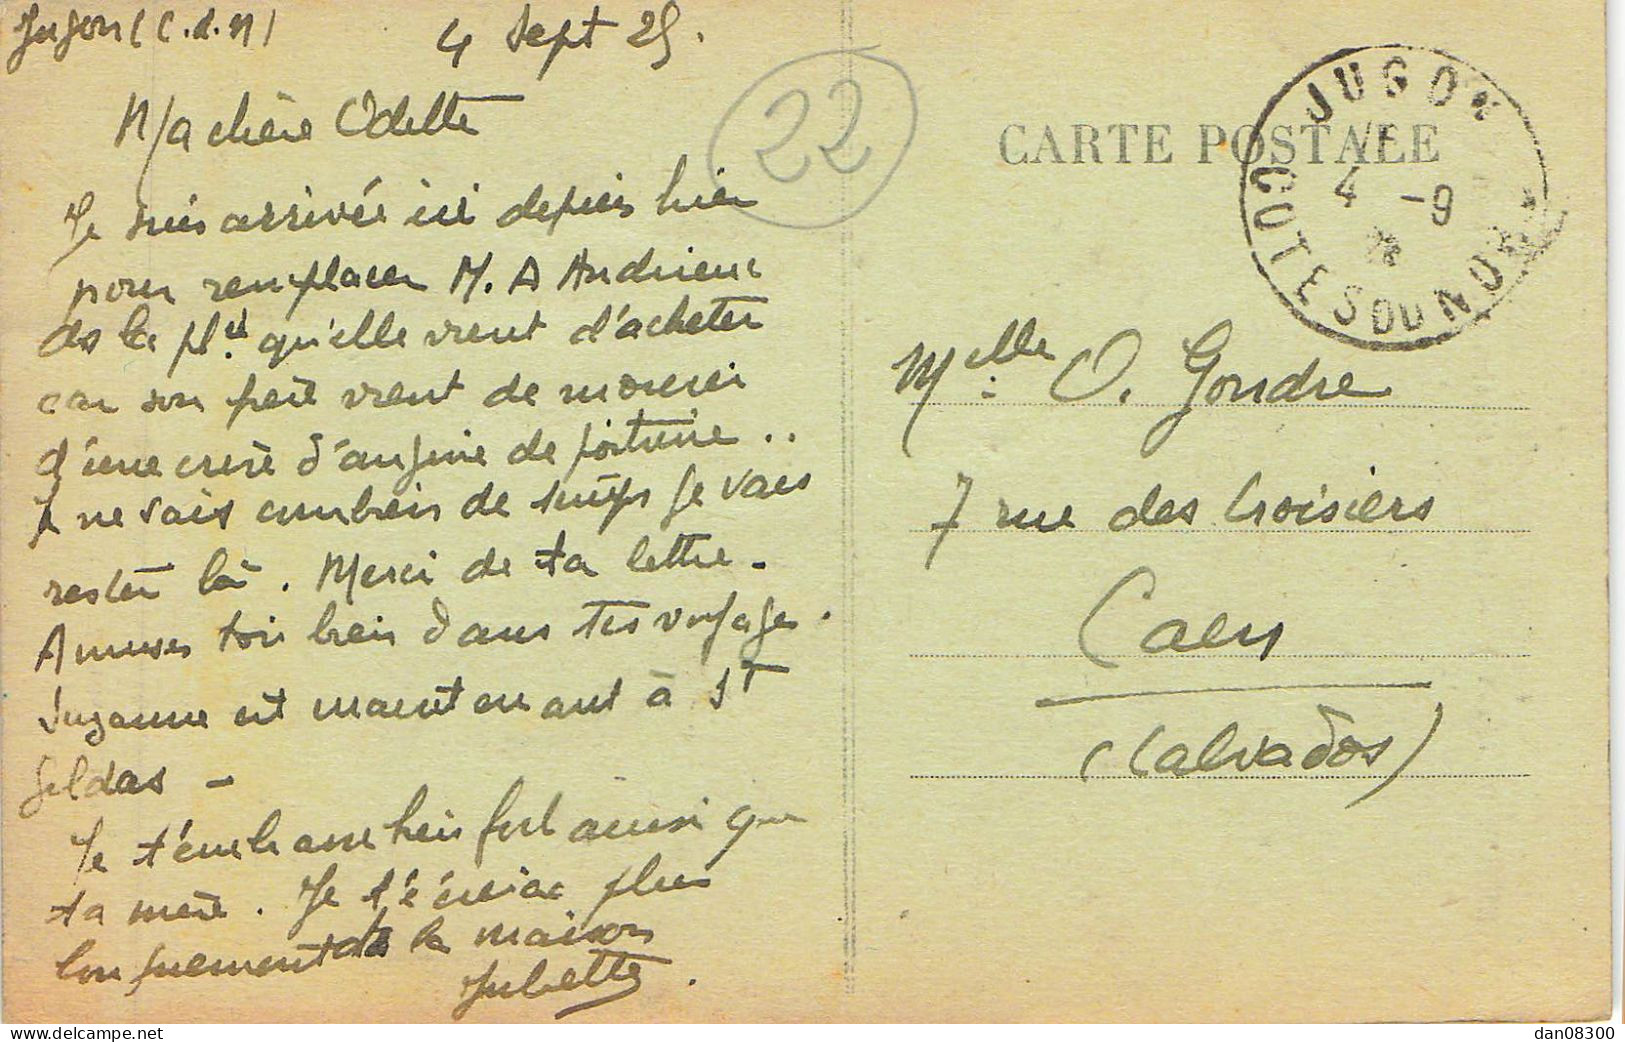 Jugon (C.d.N)
4 Sept 25.
Ma chère Odette
Je suis arrivée ici depuis hier
pour remplacer M. A Andrieux
de la Ph.ie qu'elle vient d'acheter
car son père vient de mourir
d'une crise d'angine de poitrine ..
Je ne sais combien de temps je vais
rester là. Merci de ta lettre.
Amuses toi bien dans tes voyages.
Suzanne est maintenant à St
Gildas -
Je t'embrasse bien fort ainsi que
ta mère. Je t'écrirai plus
longuement de la maison
Juliette.
22
CARTE POSTALE
JUGON
4 -9
COTES DU NORD
Melle O. Gondre
7 rue des Croisiers
Caen
(Calvados)
dan08300